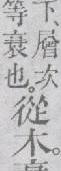 下、層次
等衰也。從木。